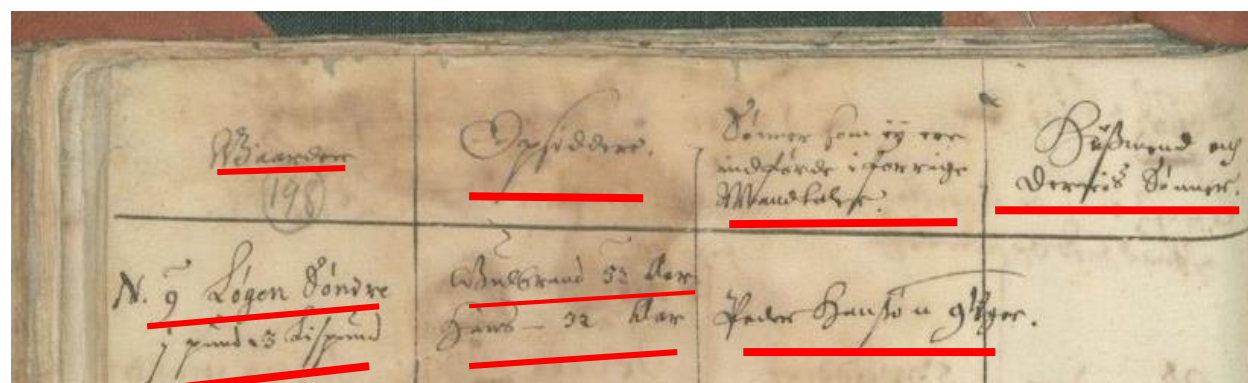 Gaarder
(198)
Opsiddere.
Sønner som ey ere
indførde i forrige
Mandtaller.
Hußmend och
Deris Sønner.
N. 9 Løgen Søndre
j pund 3 Lispund
Gulbrand 52 Aar
Hans - 32 Aar
Peder Hansøn